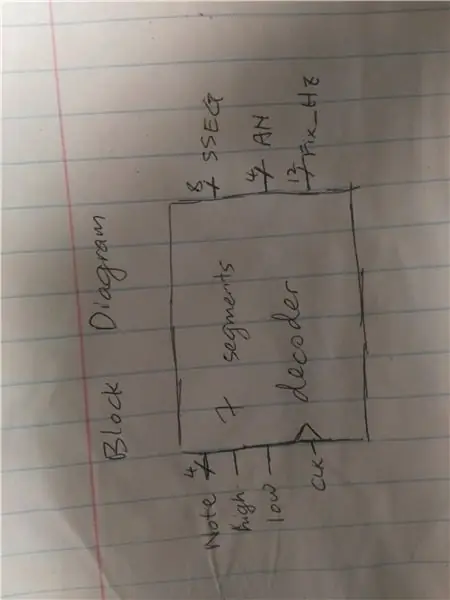 Block Diagram
Note 4
high
low
CLK
7 segments
decoder
8 SSEG
4 AN
12 Fix_Hz